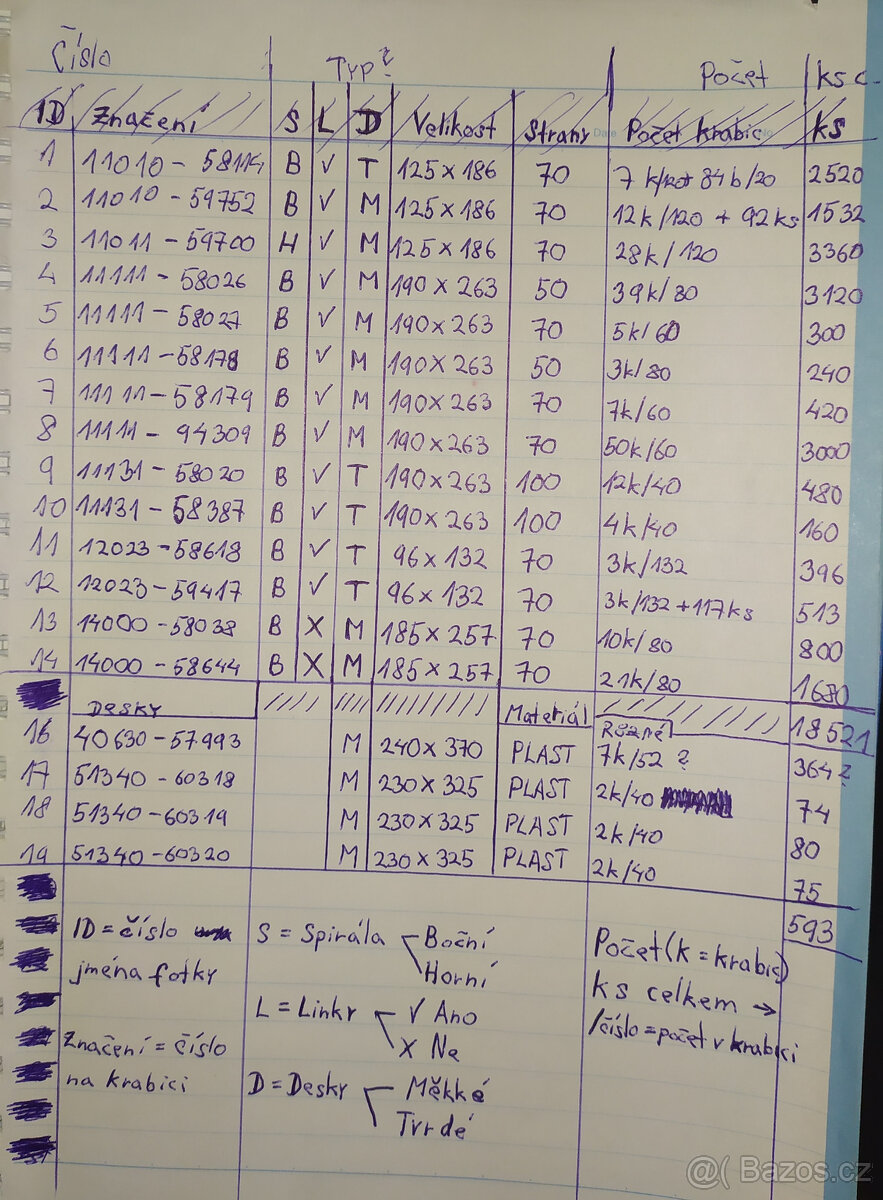 Číslo Typ? Počet ks c.
ID Značení S L D Velikost Strany Počet krabic ks
1 11010 - 58114 B √ T 125 x 186 70 7 k/ 84b/20 2520
2 11010 - 59752 B √ M 125 x 186 70 12k/120 + 92ks 1532
3 11011 - 59700 H √ M 125 x 186 70 28k/120 3360
4 11111 - 58026 B √ M 190 x 263 50 39k/80 3120
5 11111 - 58027 B √ M 190 x 263 70 5k/60 300
6 11111 - 58178 B √ M 190 x 263 50 3k/80 240
7 11111 - 58179 B √ M 190 x 263 70 7k/60 420
8 11111 - 94309 B √ M 190 x 263 70 50k/60 3000
9 11131 - 58020 B √ T 190 x 263 100 12k/40 480
10 11131 - 58387 B √ T 190 x 263 100 4k/40 160
11 12023 - 58618 B √ T 96 x 132 70 3k/132 396
12 12023 - 59417 B √ T 96 x 132 70 3k/132 + 117ks 513
13 14000 - 58038 B X M 185 x 257 70 10k/80 800
14 14000 - 58644 B X M 185 x 257 70 21k/80 1680
DESKY Materiál Různé 18521
16 40630 - 57993 M 240 x 370 PLAST 7k/52 ? 364?
17 51340 - 60318 M 230 x 325 PLAST 2k/40 74
18 51340 - 60319 M 230 x 325 PLAST 2k/40 80
19 51340 - 60320 M 230 x 325 PLAST 2k/40 75
593
ID = číslo
jména fotky
Značení = číslo
na krabici
S = Spirála Boční
Horní
L = Linky √ Ano
X Ne
D = Desky Měkké
Tvrdé
Počet (k = krabic)
ks celkem →
/číslo = počet v krabici
@( Bazos.cz